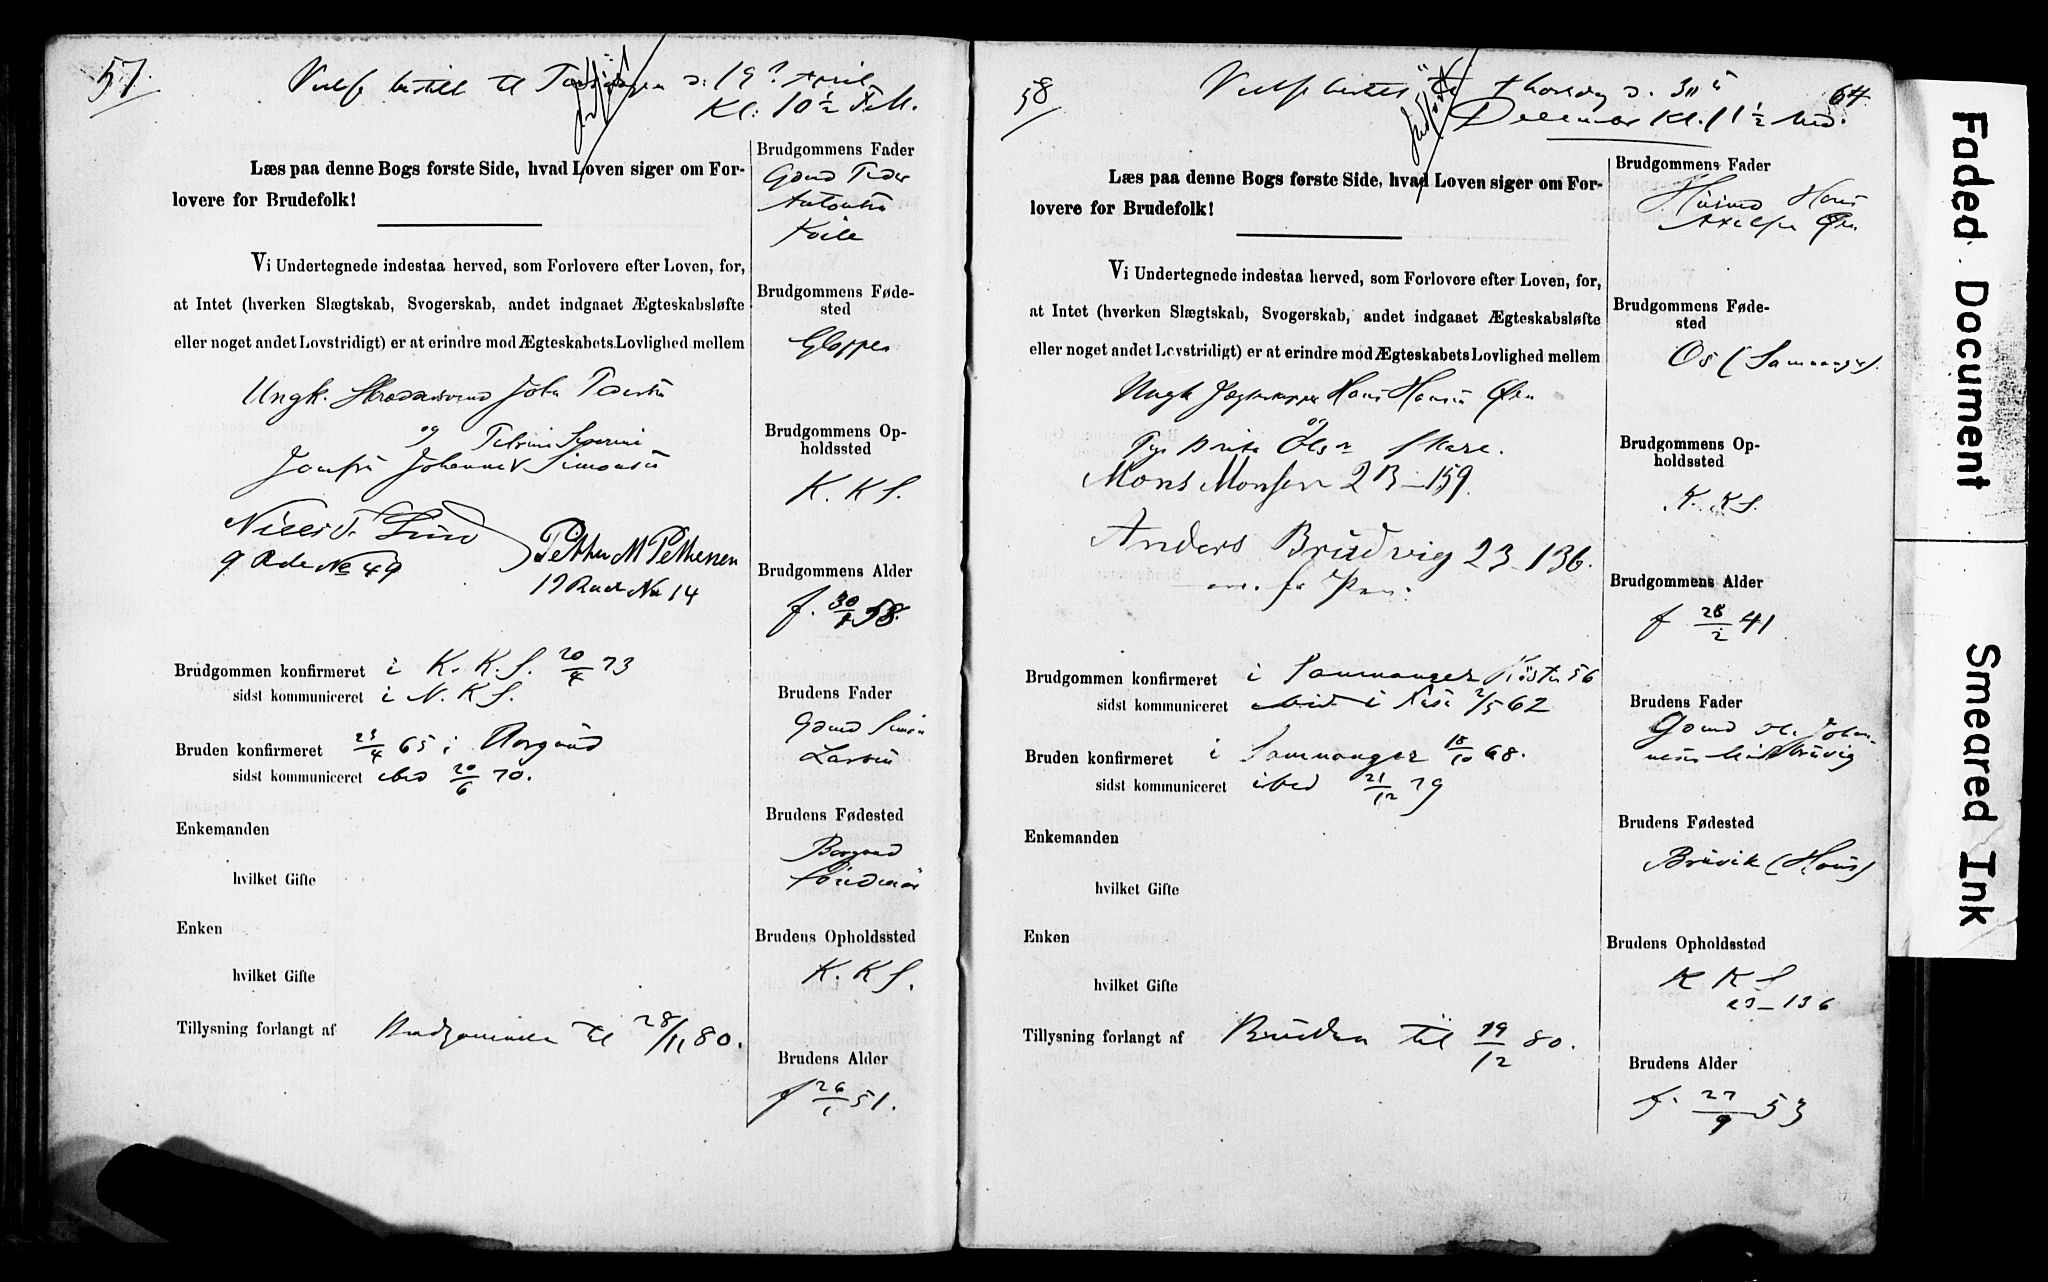 57.
Kl: 10 1/2 F.M.
Læs paa denne Bogs første Side, hvad Loven siger om For-
lovere for Brudefolk!
Vi Undertegnede indestaa herved, som Forlovere efter Loven, for,
at Intet (hverken Slægtskab, Svogerskab, andet indgaaet Ægteskabsløfte
eller noget andet Lovstridigt) er at erindre mod Ægteskabets Lovlighed mellem
Ungk. John
og Petrine Severine
Jomfru Johanne Simonsen
Niels Lind
9 Rode No 49
Petther M Pethersen
19 Rode No 14
Brudgommen konfirmeret i K. K. S. 20/4 73
sidst kommuniceret i N. K S.
Bruden konfirmeret 23/4 65 i Borgund
sidst kommuniceret ibid 20/6 70.
Enkemanden
hvilket Gifte
Enken
hvilket Gifte
Tillysning forlangt af Brudgommen til 28/11 80.
Brudgommens Fader
Gmd Peder
Brudgommens Føde-
sted
Gloppen
Brudgommens Op-
holdssted
K. K S.
Brudgommens Alder
f. 58.
Brudens Fader
Gmd Simon
Larsen
Brudens Fødested
Borgund
Søndmør
Brudens Opholdssted
K. K S.
Brudens Alder
f 26/1 51.
58
64
Kl. 11 1/2
Læs paa denne Bogs første Side, hvad Loven siger om For-
lovere for Brudefolk!
Vi Undertegnede indestaa herved, som Forlovere efter Loven, for,
at Intet (hverken Slægtskab, Svogerskab, andet indgaaet Ægteskabsløfte
eller noget andet Lovstridigt) er at erindre mod Ægteskabets Lovlighed mellem
Ungk Hans Hansen Øen
og
Pige Brita
Mons Monsen 23-159.
Anders Brudvig 23-136.
m. f. Pen.
Brudgommen konfirmeret i Samnanger Høsten 56
sidst kommuniceret 62
Bruden konfirmeret i Samnanger 18/10 68.
sidst kommuniceret ibid 21/12 79
Enkemanden
hvilket Gifte
Enken
hvilket Gifte
Tillysning forlangt af Bruden til 19/12 80.
Brudgommens Fader
Husmd Hans
Axelsen Øen
Brudgommens Føde-
sted
Os (Samnanger).
Brudgommens Op-
holdssted
K. K S.
Brudgommens Alder
f 28/2 41
Brudens Fader
Gmd
Brudens Fødested
Bruvik (Hous)
Brudens Opholdssted
K K S
23-136
Brudens Alder
f. 27/9 53
Faded Document
Smeared Ink